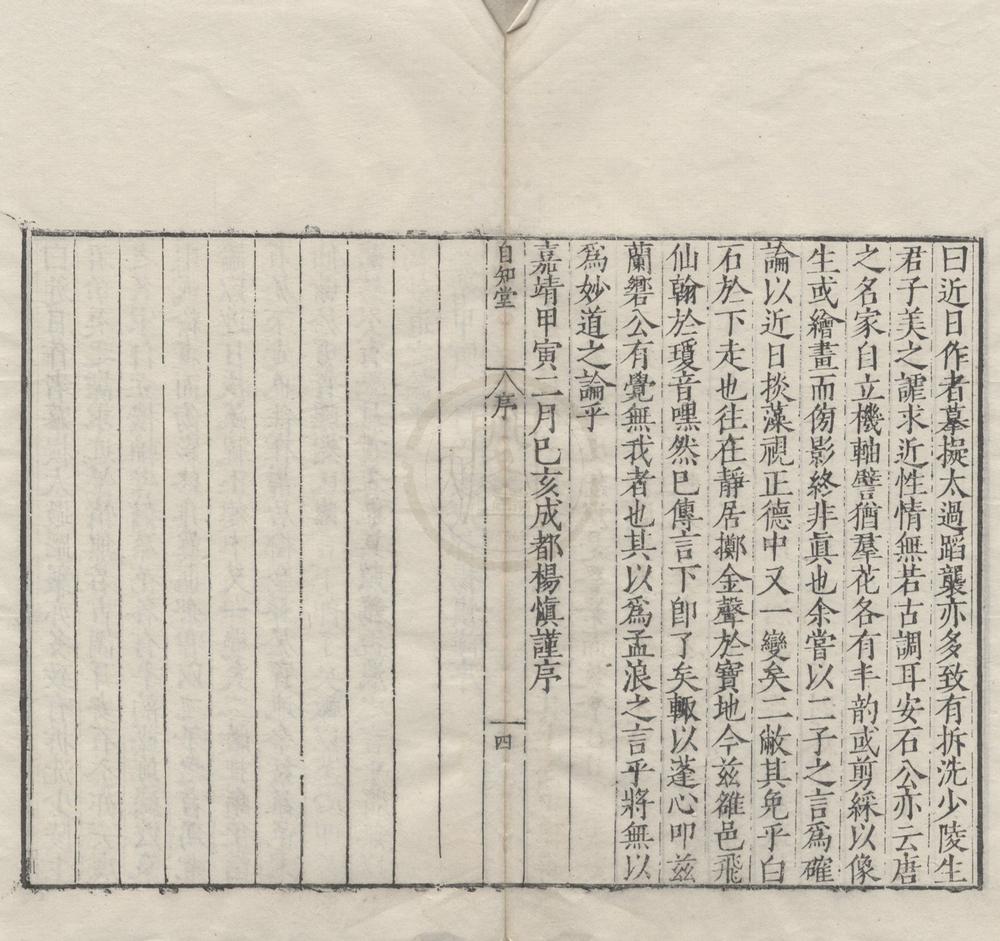 曰近日作者摹擬太過蹈襲亦多致有拆洗少陵生
吞子美之謔求近性情無若古調耳安石公亦云唐
之名家自立機軸譬猶羣花各有丰韵或剪綵以像
生或繪畫而傍影終非眞也余嘗以二子之言爲確
論以近日掞藻視正德中又一變矣二敝其免乎白
石於下走也往在靜居擲金聲於寶地今兹雒邑飛
仙翰於瓊音嘿然已傳言下卽了矣輙以蓬心叩兹
蘭響公有覺無我者也其以爲孟浪之言乎將無以
爲妙道之論乎
嘉靖甲寅二月巳亥成都楊愼謹序
自知堂 序 四